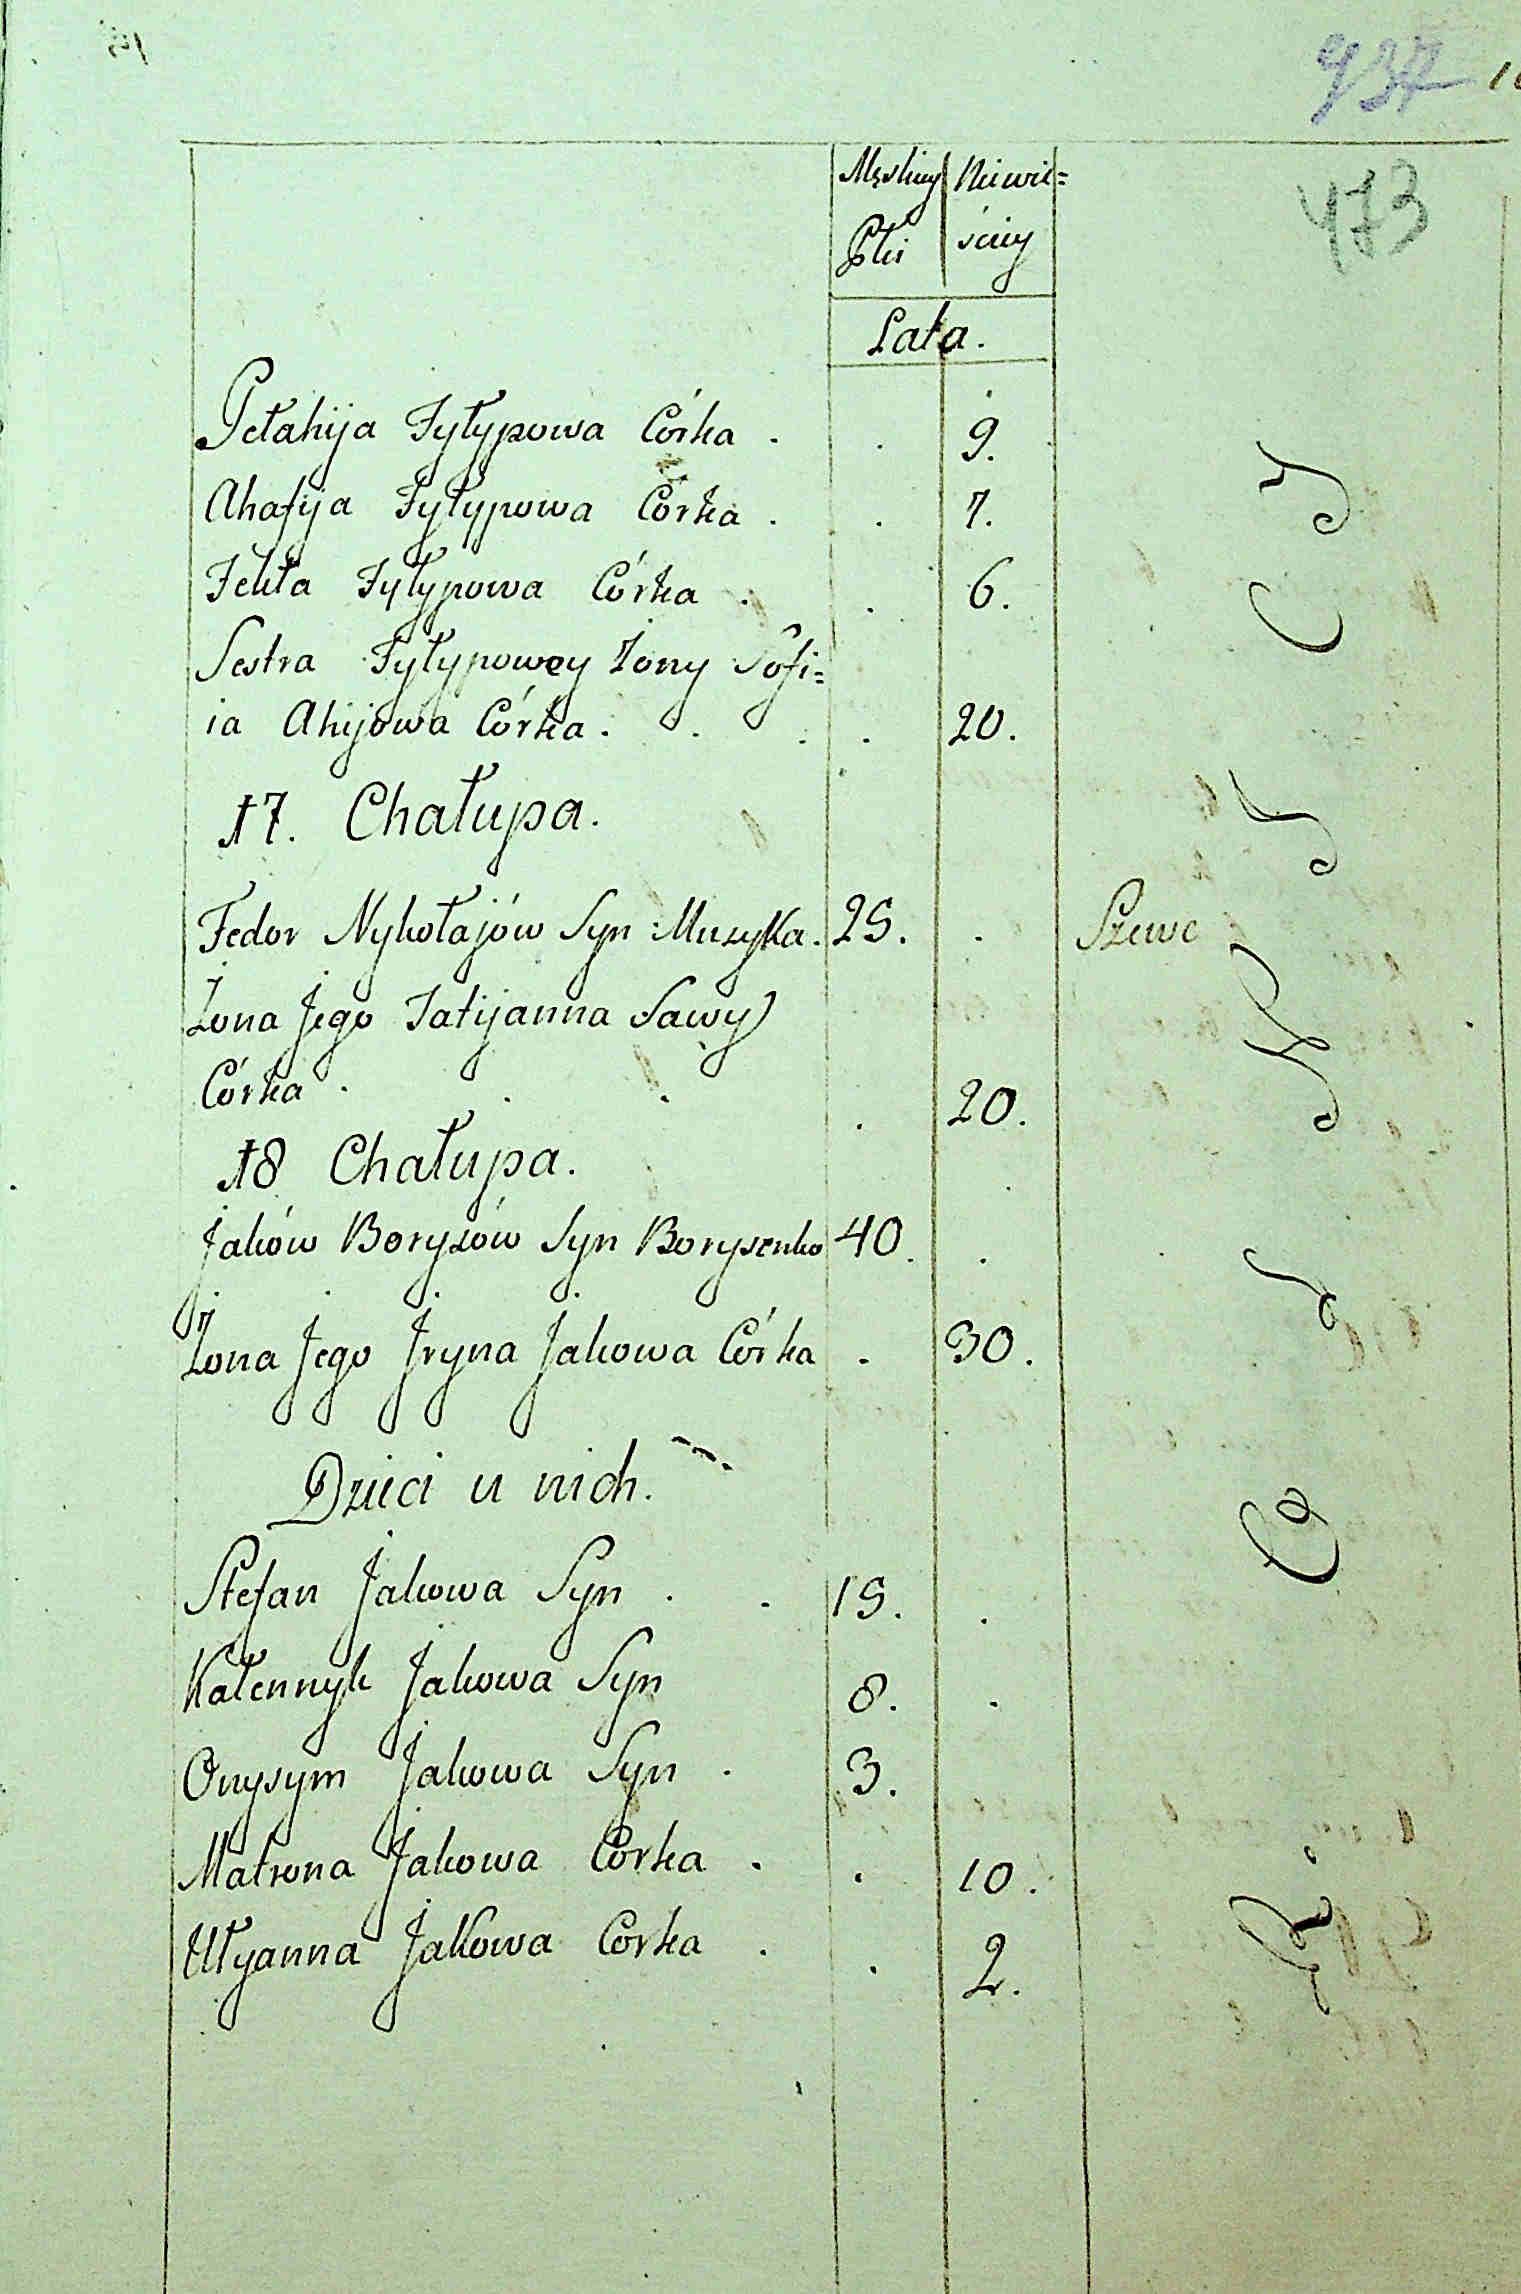 937
473
Męskiey Niewie=
Płci ściey
Lata.
Pełahija Fyłypowa Córka . . 9.
Ahafija Fyłypowa Córka . . 7.
Fekła Fyłypowa Córka . . 6.
Sestra Fyłypowey Żony Sofi=
ia Ahijowa Córka . . . . 20.
17. Chałupa.
Fedor Nykołajów Syn Muzyka. 25. . Szewc
Żona Jego Tatijanna Sawy
Córka . . . . 20.
18 Chałupa.
Jaków Borysów Syn Borysenko 40. .
Żona Jego Jryna Jakowa Córka . 30.
Dzieci u nich.
Stefan Jakowa Syn . . 15. .
Kałennyk Jakowa Syn 8. .
Onysym Jakowa Syn . 3.
Matrona Jakowa Corka . . 10.
Ułyanna Jakowa Corka . . 2.